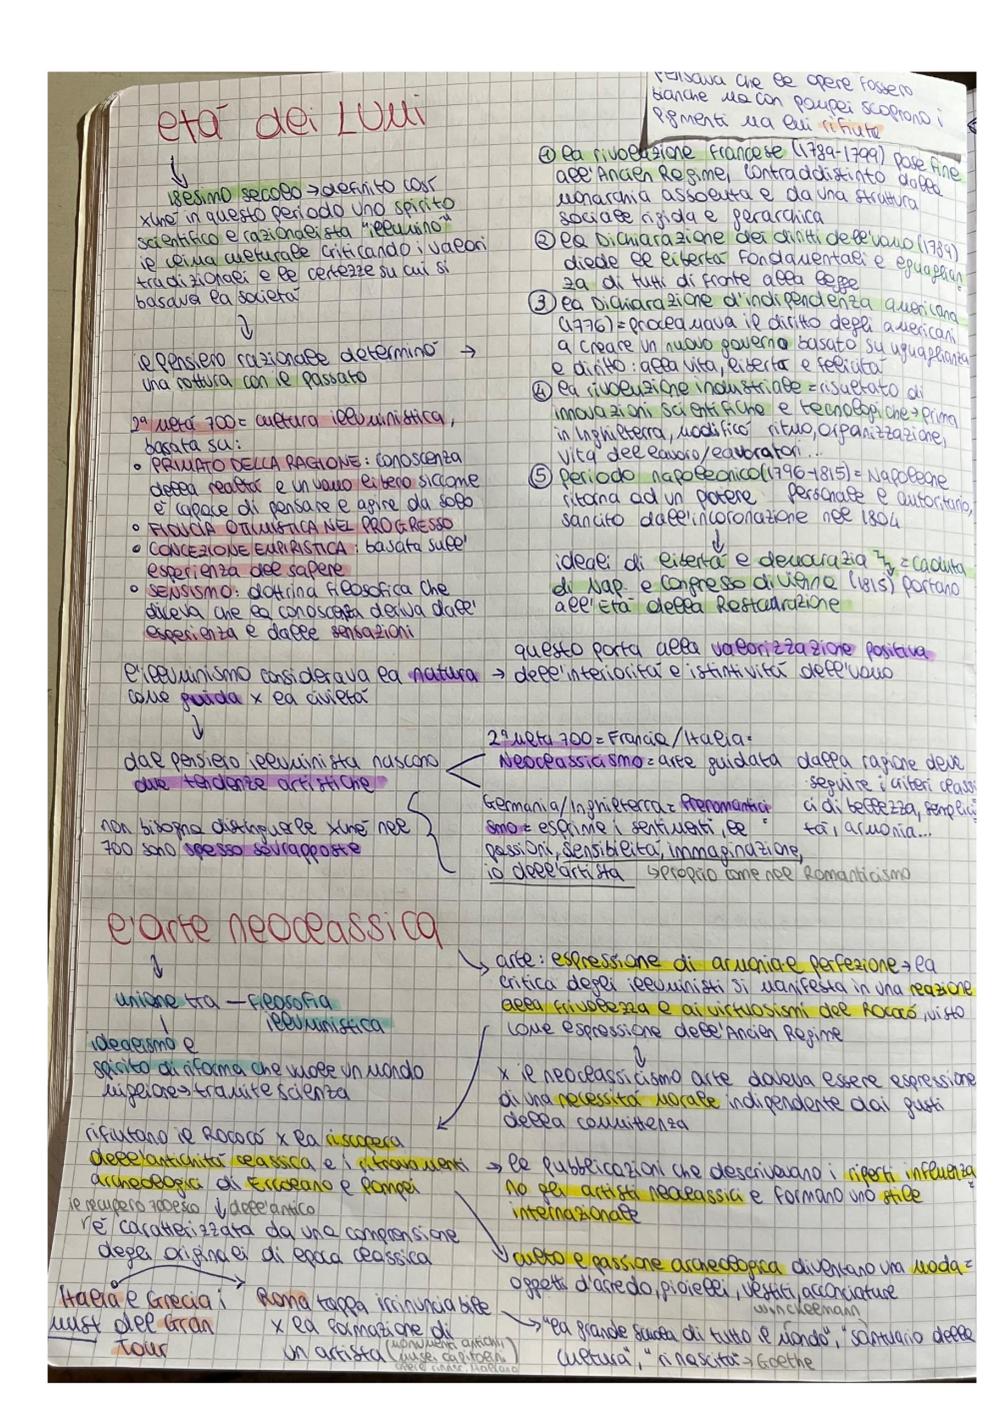 pensava che le opere fossero
bianche ma con pompei scoprono i
pigmenti ma lui rifiuta
età dei LUMI
18esimo secolo → definito così
xkné in questo periodo uno spirito
scientifico e razionalista "illuminò"
il clima culturale criticando i valori
tradizionali e le certezze su cui si
basava la società
il pensiero razionale determinò →
una rottura con il passato
2ª metà 700 = cultura illuministica,
basata su:
• PRIMATO DELLA RAGIONE: conoscenza
della realtà e un uomo libero siccome
è capace di pensare e agire da solo
• FIDUCIA OTTIMISTICA NEL PROGRESSO
• CONCEZIONE EMPIRISTICA: basata sull'
esperienza del sapere
• SENSISMO: dottrina filosofica che
diceva che la conoscenza deriva dall'
esperienza e dalle sensazioni
① la rivoluzione francese (1789-1799) pose fine
all'Ancien Regime, contraddistinto dalla
monarchia assoluta e da una struttura
sociale rigida e gerarchica
② la Dichiarazione dei diritti dell'uomo (1789)
diede le libertà fondamentali e eguaglian
za di tutti di fronte alla legge
③ la Dichiarazione d'indipendenza americana
(1776) = proclamava il diritto degli americani
a creare un nuovo governo basato su uguaglianza
e diritto: alla vita, libertà e felicità
④ la rivoluzione industriale = risultato di
innovazioni scientifiche e tecnologiche → prima
in Inghilterra, modificò ritmo, organizzazione,
vita del lavoro/lavoratori...
⑤ Periodo napoleonico (1796-1815) = Napoleone
ritorna ad un potere personale e autoritario,
sancito dall'incoronazione nel 1804
ideali di libertà e democrazia = caduta
di Nap. e Congresso di Vienna (1815) portano
all'Età della Restaurazione
l'illuminismo considerava la natura →
come guida x la civiltà
questo porta alla valorizzazione positiva
dell'interiorità e istintività dell'uomo
dal pensiero illuminista nascono
due tendenze artistiche
2ª metà 700 = Francia/Italia =
Neoclassicismo = arte guidata dalla ragione deve
seguire i criteri classi
ci di bellezza, semplici
tà, armonia...
Germania/Inghilterra = Preromantici
smo = esprime i sentimenti, le
passioni, sensibilità, immaginazione,
io dell'artista ↳ proprio come nel Romanticismo
non bisogna distinguerle xkné nel
700 sono spesso sovrapposte
l'arte neoclassica
unione tra — filosofia
illuministica
idealismo e
spirito di riforma che vuole un mondo
migliore → tramite scienza
↳ arte: espressione di armonia e perfezione → la
critica degli illuministi si manifesta in una reazione
alla frivolezza e ai virtuosismi del Rococò, visto
come espressione dell'Ancien Regime
x il neoclassicismo arte doveva essere espressione
di una necessità morale indipendente dai gusti
della committenza
rifiutano il Rococò x la riscoperta
dell'antichità classica e i ritrovamenti
archeologici di Ercolano e Pompei
→ le pubblicazioni che descrivevano i reperti influenza
no gli artisti neoclassici e formano uno stile
internazionale
il recupero 700esco ↓ dell'antico
è caratterizzata da una comprensione
degli originali di epoca classica
culto e passione archeologica diventano una moda =
oggetti d'arredo, gioielli, vestiti, acconciature
Italia e Grecia i
must del Gran
Tour
Roma tappa irrinunciabile
x la formazione di
un artista (monumenti antichi,
musei capitolini
winckelmann
→ "la grande scuola di tutto il mondo", "santuario della
cultura", "rinascita" → Goethe